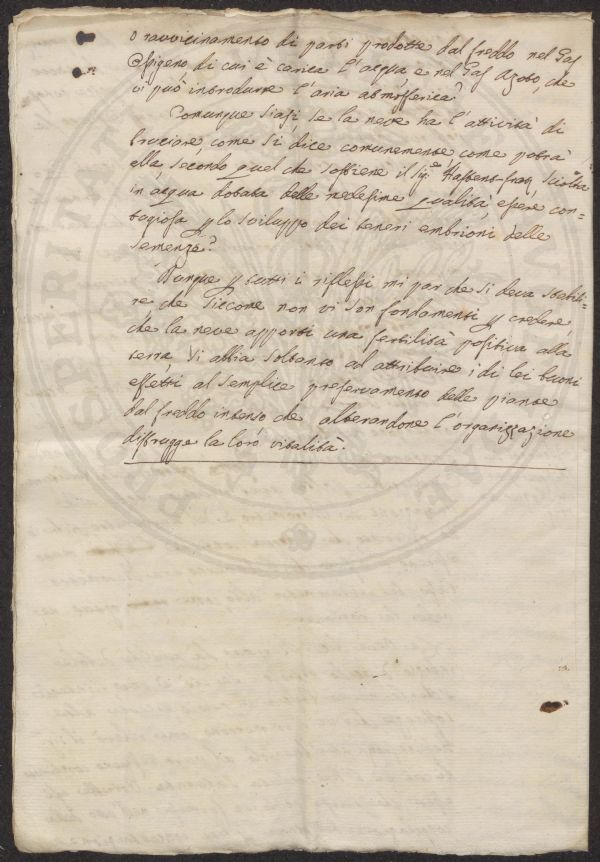 o ravvicinamento di parti prodotte dal freddo nel Gas
Ossigeno, di cui è carica l'acqua, e nel Gas Azoto, che
vi può introdurre l'aria atmosferica?
Comunque siasi, se la neve ha l'attività di
bruciare, come si dice comunemente, come potrà
ella, secondo quel che sostiene il Sig.e Hassenfratz sciolta
in acqua dotata delle medesime qualità, essere con=
tagiosa p lo sviluppo dei teneri embrioni delle
semenze?
Dunque p tutti i riflessi mi par che si deva stabili=
re che siccome non vi son fondamenti p credere
che la neve apporti una fertilità positiva alla
terra, si abbia soltanto ad attribuire i di lei buoni
effetti al semplice preservamento delle piante
dal freddo intenso che alterandone l'organizzazione
distrugge la loro vitalità.